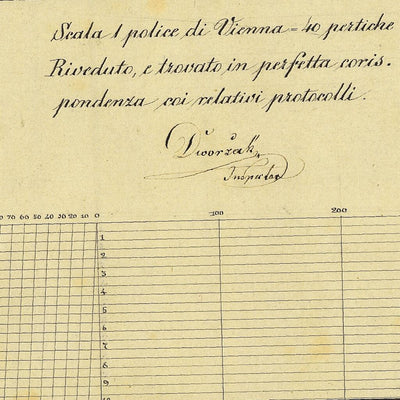 Scala 1 police di Vienna = 40 pertiche
Riveduto, e trovato in perfetta coris-
pondenza coi relativi protocolli.
Dworžak
Inspector
70 60 50 40 30 20 10 0 100 200
1
2
3
4
5
6
7
8
9
10